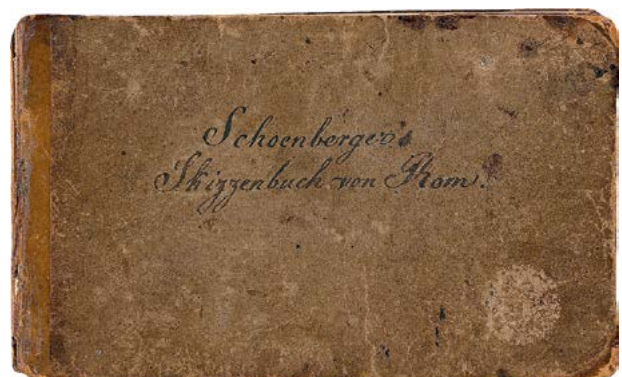 Schoenberger's
Skizzenbuch von Rom.